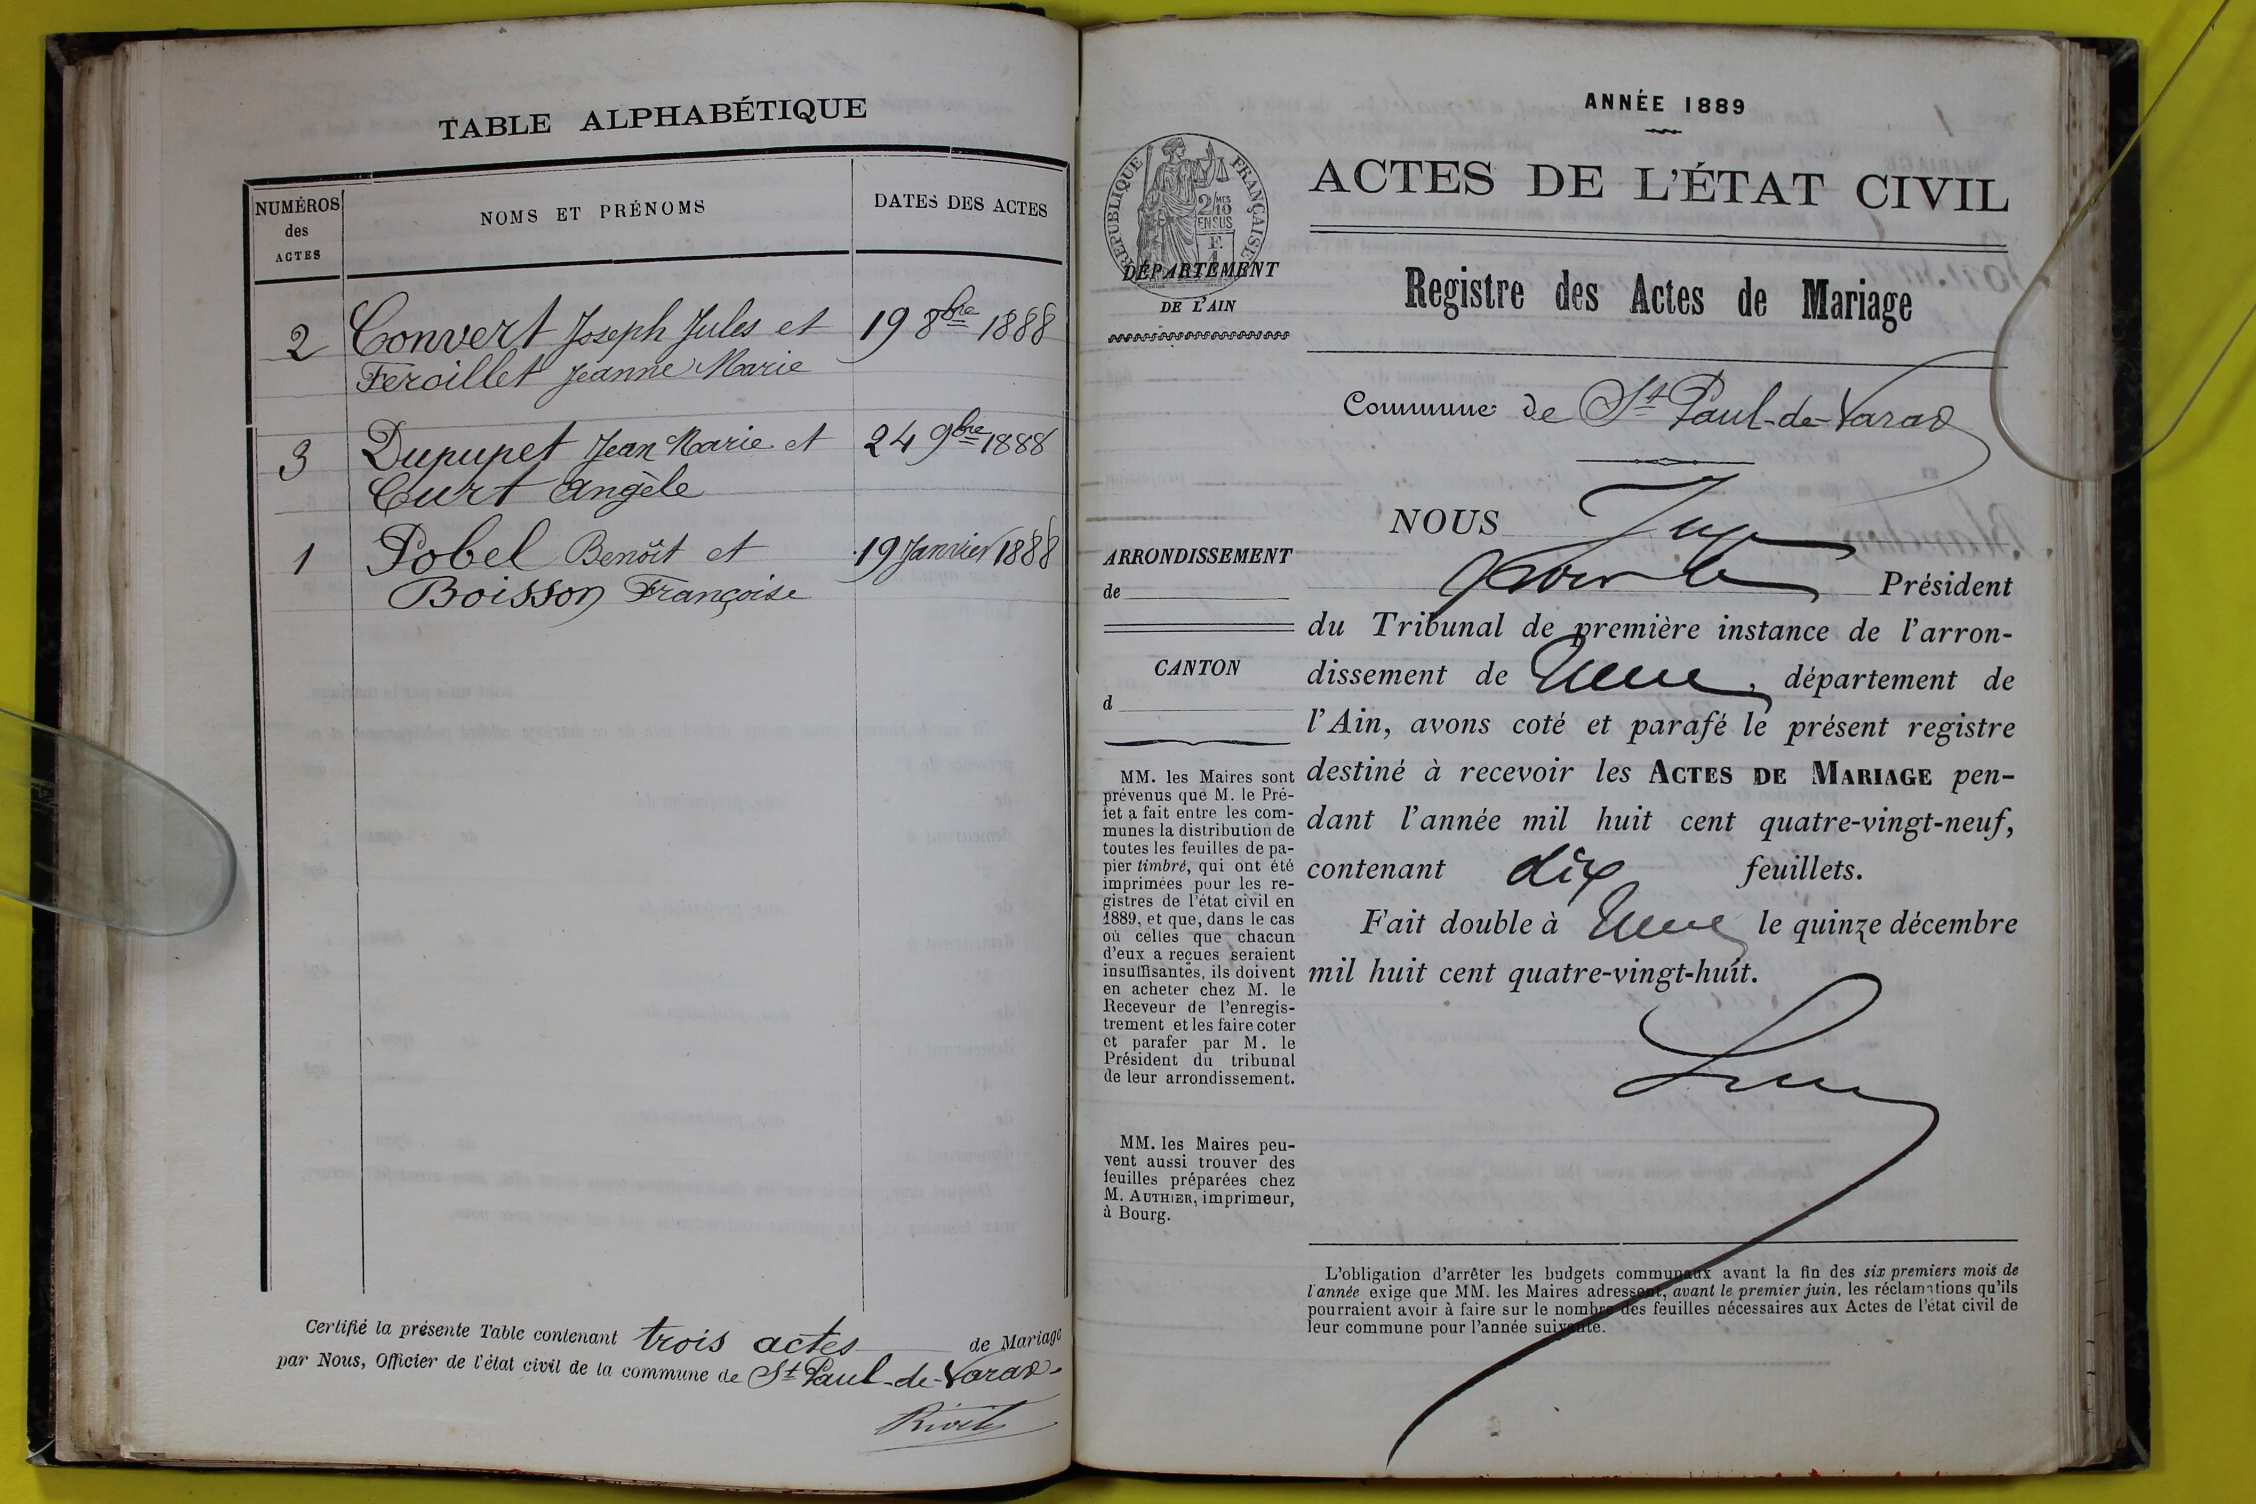 TABLE ALPHABÉTIQUE
NUMÉROS des ACTES
NOMS ET PRÉNOMS
DATES DES ACTES
2 Convert Joseph Jules et 19 8bre 1888
Feroillet Jeanne Marie
3 Dupupet Jean Marie et 24 9bre 1888
Curt Angèle
1 Pobel Benoît et 19 Janvier 1888
Boisson Françoise
Certifié la présente Table contenant trois actes de Mariage
par Nous, Officier de l'état civil de la commune de St Paul-de-Varax
ANNÉE 1889
ACTES DE L'ÉTAT CIVIL
RÉPUBLIQUE FRANÇAISE
2/10 MES
EN SUS
DÉPARTEMENT
DE L'AIN
Registre des Actes de Mariage
Commune de St Paul-de-Varax
ARRONDISSEMENT
de
CANTON
d
MM. les Maires sont
prévenus que M. le Pré-
fet a fait entre les com-
munes la distribution de
toutes les feuilles de pa-
pier timbré, qui ont été
imprimées pour les re-
gistres de l'état civil en
1889, et que, dans le cas
où celles que chacun
d'eux a reçues seraient
insuffisantes, ils doivent
en acheter chez M. le
Receveur de l'enregis-
trement et les faire coter
et parafer par M. le
Président du tribunal
de leur arrondissement.
MM. les Maires peu-
vent aussi trouver des
feuilles préparées chez
M. AUTHIER, imprimeur,
à Bourg.
NOUS Juge
Président
du Tribunal de première instance de l'arron-
dissement de , département de
l'Ain, avons coté et parafé le présent registre
destiné à recevoir les ACTES DE MARIAGE pen-
dant l'année mil huit cent quatre-vingt-neuf,
contenant dix feuillets.
Fait double à le quinze décembre
mil huit cent quatre-vingt-huit.
L'obligation d'arrêter les budgets communaux avant la fin des six premiers mois de
l'année exige que MM. les Maires adressent, avant le premier juin, les réclamations qu'ils
pourraient avoir à faire sur le nombre des feuilles nécessaires aux Actes de l'état civil de
leur commune pour l'année suivante.